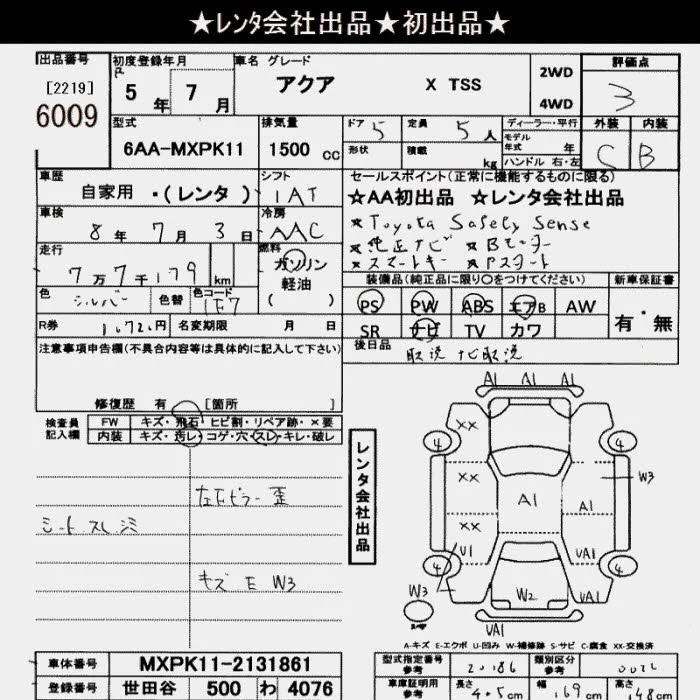 ★レンタ会社出品★初出品★
出品番号 初度登録年月 車名 グレード 評価点
[2219] 5年 7月 アクア X TSS 2WD 3
6009 4WD
型式 排気量 ドア 5 定員 5人 ディーラー・平行 外装 内装
6AA-MXPK11 1500 cc 形状 積載 kg モデル年式 年 C B
ハンドル 右・左
車歴 シフト セールスポイント(正常に機能するものに限る)
自家用 ・(レンタ) IAT ☆AA初出品 ☆レンタ会社出品
車検 冷房 ★Toyota Safety Sense
8年 7月 3日 AAC ★純正ナビ ★Bモーター
走行 燃料 ★スマートキー ★Pスタート
7万7千179 km ガソリン
軽油
( )
装備品(純正品に限り○をつけてください) 新車保証書
色 シルバー 色替 色コード 1F7 PS PW ABS エアB AW 有・無
R券 名変期限 月 日 SR ナビ TV カワ
注意事項申告欄(不具合内容等は具体的に記入して下さい) 後日品 取説 ナビ取説
修復歴 有 [箇所 ]
検査員記入欄 FW キズ・飛石・ヒビ割・リペア跡・×要
内装 キズ・汚レ・コゲ・穴・スレ・キレ・破レ
左
シートスレ
キズ E W3
レンタ会社出品
A1 A1
XX
4 4
XX W3
A1
XX
U1 A1 UA1
4 4
UA1
W3 W2
UA1
A-キズ E-エクボ U-凹み W-補修跡 S-サビ C-腐食 XX-交換済
車体番号 MXPK11-2131861 型式指定番号 参考 20186 類別区分 参考 0022
登録番号 世田谷 500 わ 4076 車庫証明用 参考 長さ 405cm 幅 169cm 高さ 148cm